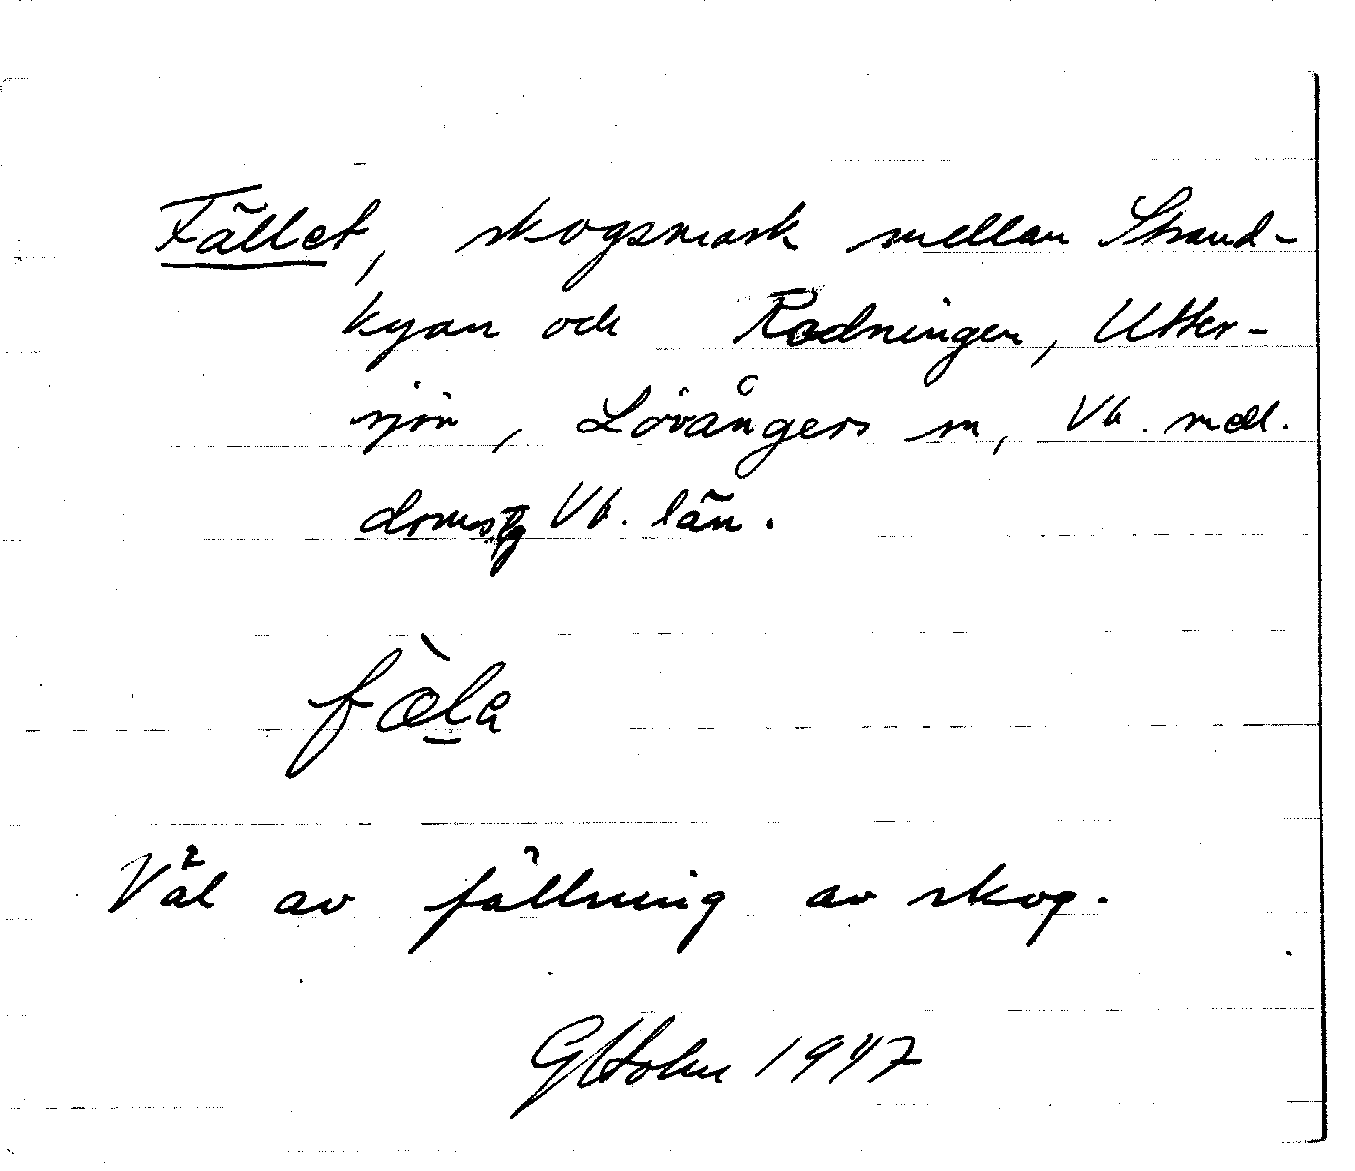 Fället, skogsmark mellan Strand-
kyan och Rodningen, Utter-
sjön, Lövångers sn, Vb. mell.
doms, Vb. län.
fæ̀l̲a
Väl av fällning av skog.
GHolm 1947